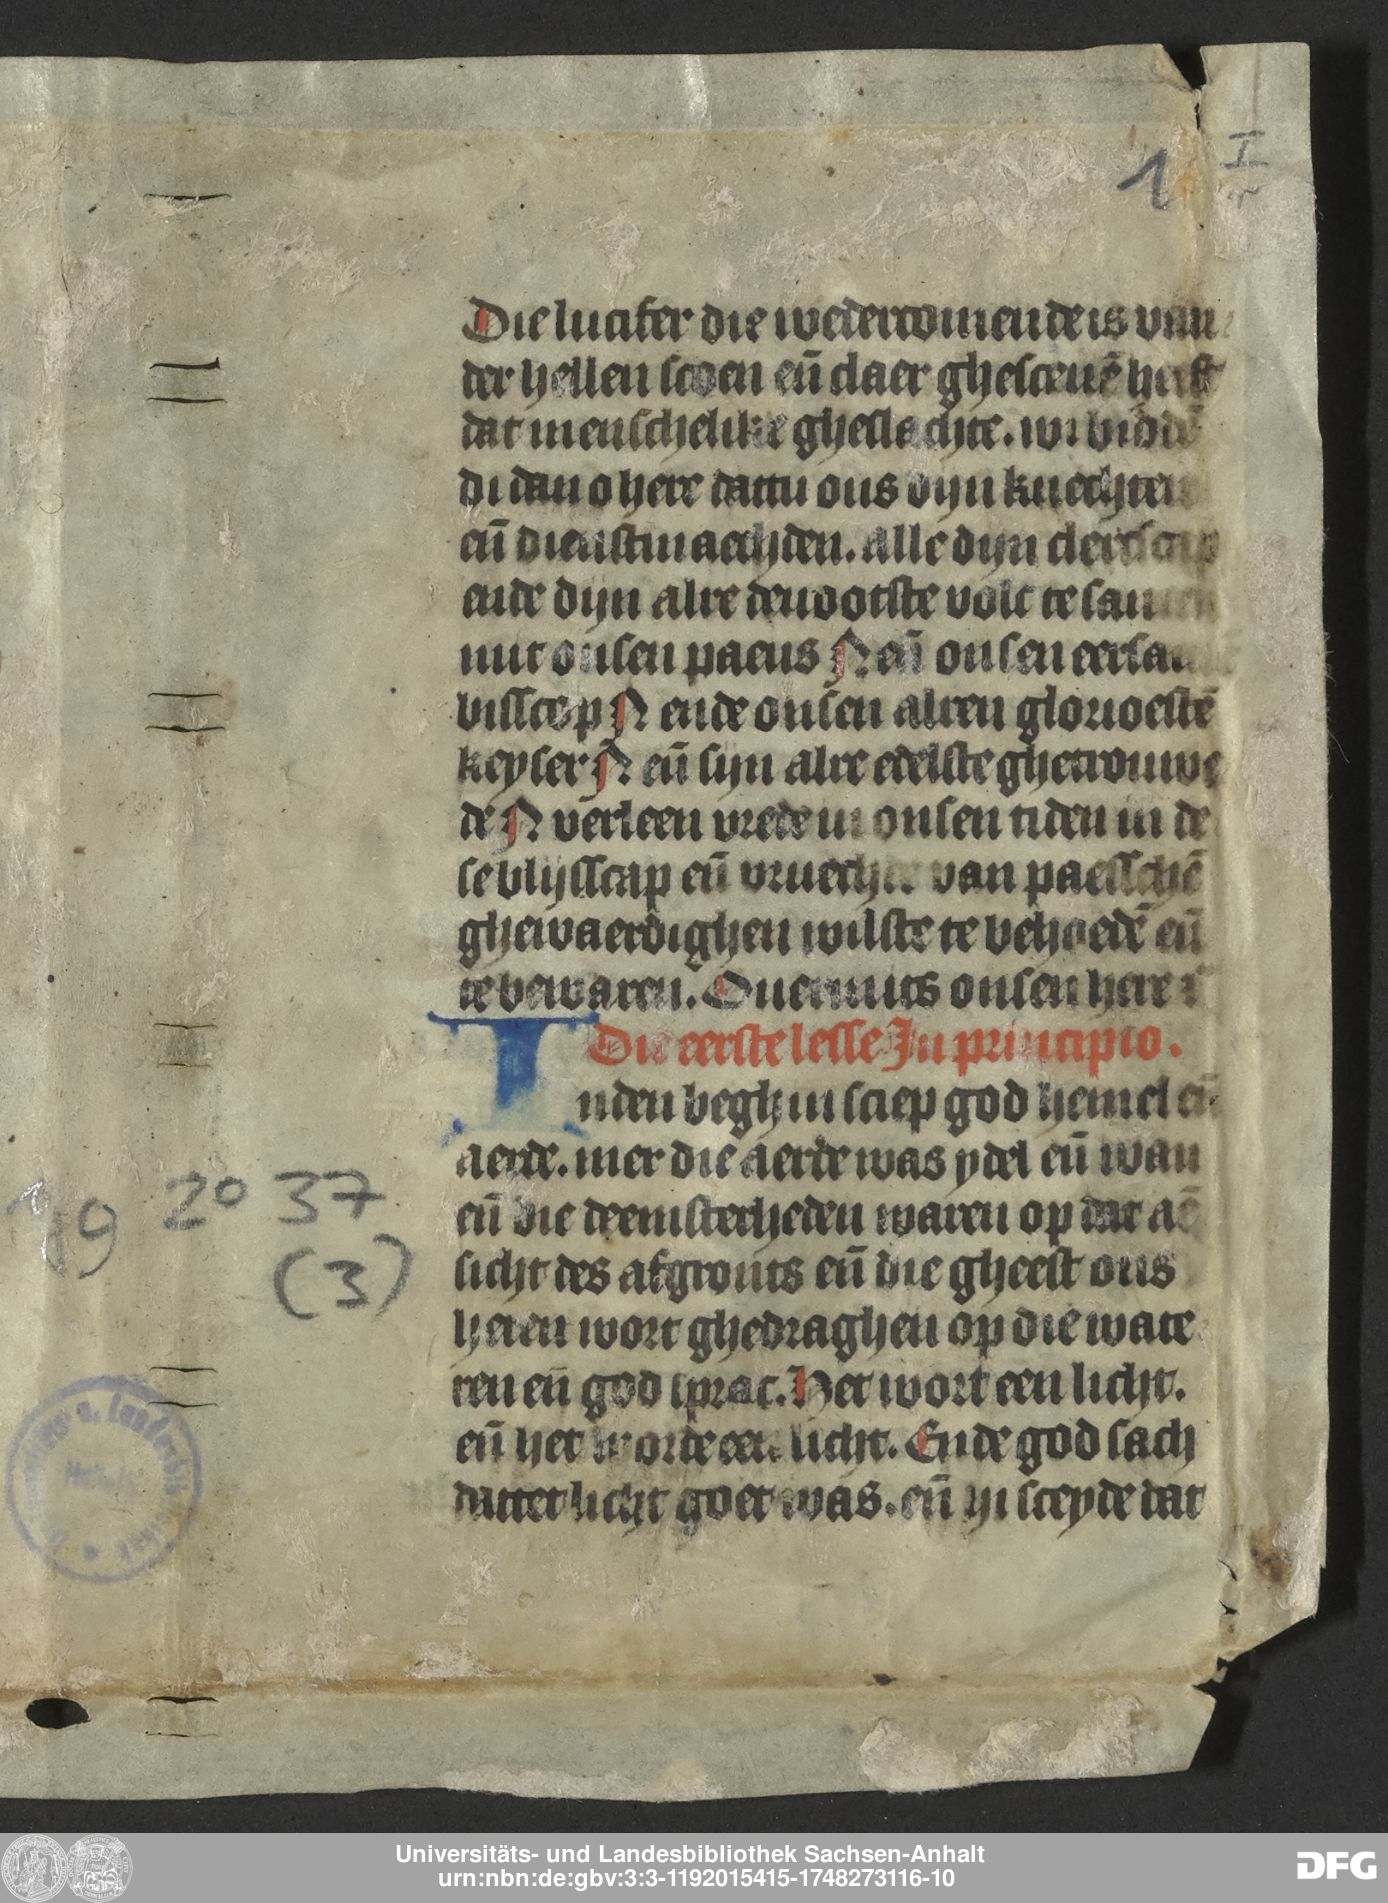 1 I
r
Die lucifer die wedercomende is van
der hellen scoen eñ claer ghescenē heeft
dat menschelike gheslachte. wi biddē
di dan o here dattu ons dijn knechten
eñ dienstmaechden. alle dijn clercscap
ende dijn alre deuootste volc te samen
mit onsen paeus N eñ onsen eersamē
bisscop N ende onsen alren glorioestē
keyser N eñ sijn alre edelste ghetrouwe
de N verleen vrede in onsen tiden in de
se blijsscap eñ vruechde van paesschē
ghewaerdighen wilste te behoedē eñ
te bewaren. Ouermits onsen here
Die eerste lesse In principio.
Inden beghin sciep god hemel eñ
aerde. mer die aerde was ydel eñ wan
eñ die deemsterheden waren op dat aē
sicht des afgronts eñ die gheest ons
heren wort ghedraghen op die wate
ren eñ god sprac. Het wort een licht.
eñ het worde een licht. Ende god sach
dattet licht goet was. eñ hi sceyde dat
19 20 37
(3)
Universitäts- und Landesbibliothek Sachsen-Anhalt
urn:nbn:de:gbv:3:3-1192015415-1748273116-10
DFG